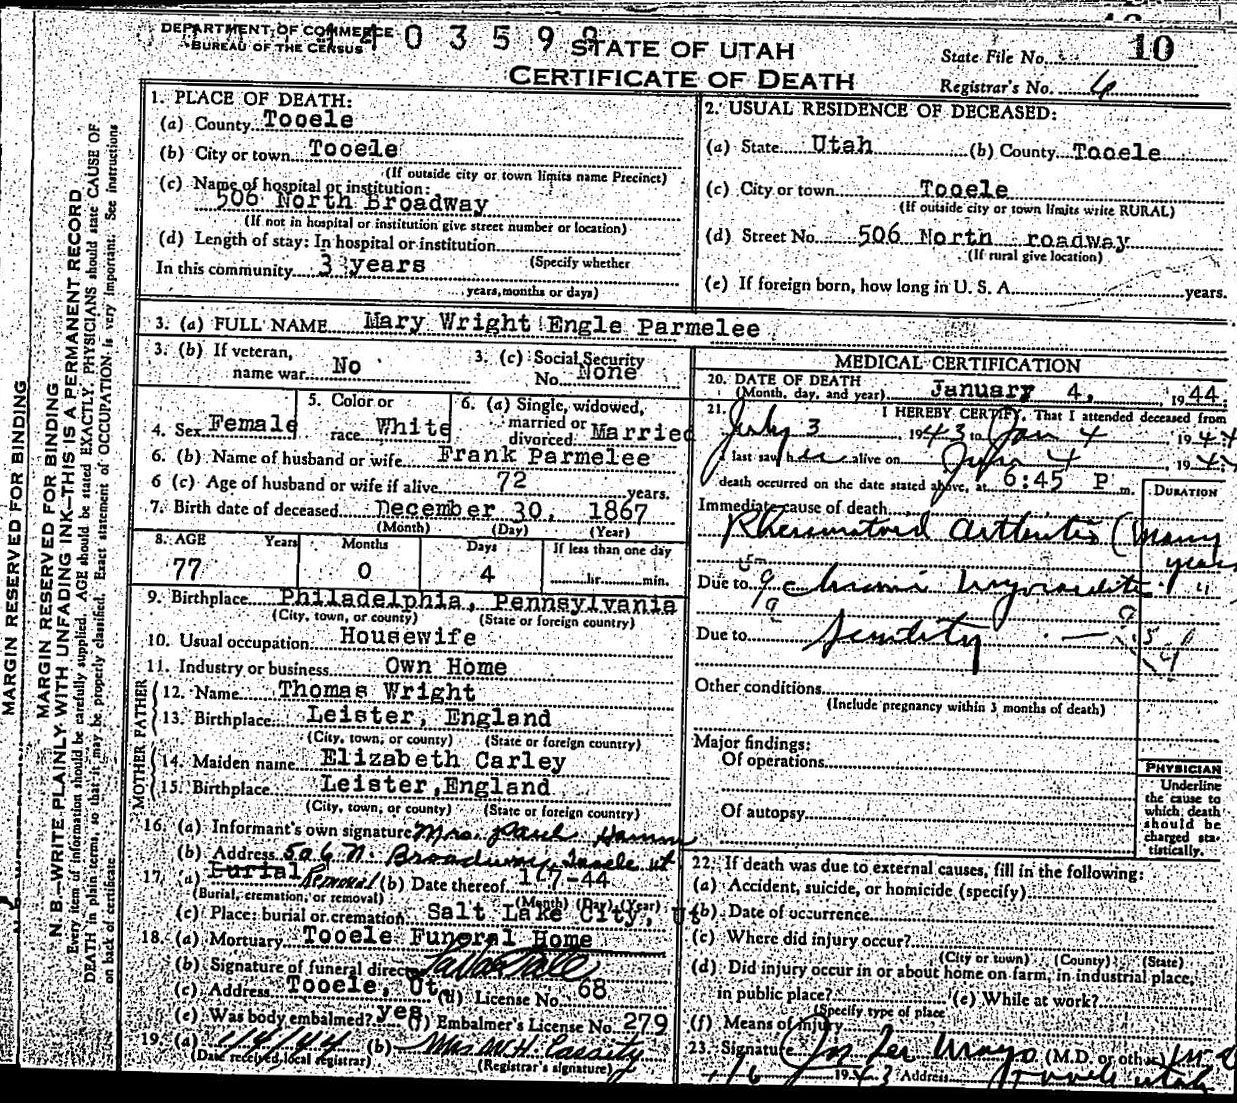 DEPARTMENT OF COMMERCE
BUREAU OF THE CENSUS
STATE OF UTAH
CERTIFICATE OF DEATH
State File No. 10
Registrar's No. 6
MARGIN RESERVED FOR BINDING
MARGIN RESERVED FOR BINDING
N. B.—WRITE PLAINLY, WITH UNFADING INK—THIS IS A PERMANENT RECORD
Every item of information should be carefully supplied. AGE should be stated EXACTLY. PHYSICIANS should state CAUSE OF
DEATH in plain terms, so that it may be properly classified. Exact statement of OCCUPATION is very important. See instructions
on back of certificate.
1. PLACE OF DEATH:
(a) County Tooele
(b) City or town Tooele
(If outside city or town limits name Precinct)
(c) Name of hospital or institution:
506 North Broadway
(If not in hospital or institution give street number or location)
(d) Length of stay: In hospital or institution
(Specify whether
In this community 3 years
years, months or days)
2. USUAL RESIDENCE OF DECEASED:
(a) State Utah (b) County Tooele
(c) City or town Tooele
(If outside city or town limits write RURAL)
(d) Street No. 506 North roadway
(If rural give location)
(e) If foreign born, how long in U. S. A. years.
3. (a) FULL NAME Mary Wright Engle Parmelee
3. (b) If veteran,
name war No
3. (c) Social Security
No. None
4. Sex Female
5. Color or
race White
6. (a) Single, widowed,
married or
divorced Married
6. (b) Name of husband or wife Frank Parmelee
6 (c) Age of husband or wife if alive 72 years.
7. Birth date of deceased December 30, 1867
(Month) (Day) (Year)
8. AGE Years Months Days If less than one day
77 0 4 hr. min.
9. Birthplace Philadelphia, Pennsylvania
(City, town, or county) (State or foreign country)
10. Usual occupation Housewife
11. Industry or business Own Home
FATHER
12. Name Thomas Wright
13. Birthplace Leister, England
(City, town, or county) (State or foreign country)
MOTHER
14. Maiden name Elizabeth Carley
15. Birthplace Leister, England
(City, town, or county) (State or foreign country)
16. (a) Informant's own signature Mrs. Paul Hamm
(b) Address 506 N. Broadway, Tooele Ut
17. (a) Burial Removal (b) Date thereof 1 7-44
(Burial, cremation, or removal) (Month) (Day) (Year)
(c) Place: burial or cremation Salt Lake City, Ut
18. (a) Mortuary Tooele Funeral Home
(b) Signature of funeral director
(c) Address Tooele, Ut (d) License No. 68
(e) Was body embalmed? yes (f) Embalmer's License No. 279
19. (a) (b) Mrs. W.H. Cassity
(Date received local registrar) (Registrar's signature)
MEDICAL CERTIFICATION
20. DATE OF DEATH
(Month, day, and year) January 4, 1944.
21. I HEREBY CERTIFY, That I attended deceased from
July 3 1943 to Jan 4 1944
I last saw her alive on Jan 4, 1944
death occurred on the date stated above, at 6:45 P m.
DURATION
Immediate cause of death
Rheumatoid Arthritis (Many
years
Due to Chronic Myocarditis
Due to Senility
Other conditions
(Include pregnancy within 3 months of death)
Major findings:
Of operations
Of autopsy
PHYSICIAN
Underline
the cause to
which death
should be
charged sta-
tistically.
22. If death was due to external causes, fill in the following:
(a) Accident, suicide, or homicide (specify)
(b) Date of occurrence
(c) Where did injury occur?
(City or town) (County) (State)
(d) Did injury occur in or about home on farm, in industrial place,
in public place? (e) While at work?
(Specify type of place
(f) Means of injury
23. Signature Mayo (M.D. or other) M.D
1/6 1943 Address Tooele Utah